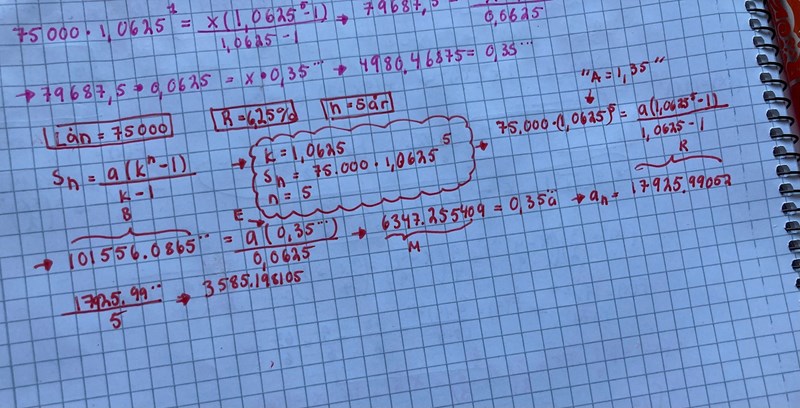 75 000 · 1,0625¹ = x(1,0625⁵-1) / 1,0625-1 → 79687,5 = / 0,0625
→ 79687,5 · 0,0625 = x · 0,35... → 4980,46875 = 0,35...
"A = 1,35"
Lån = 75000 R = 6,25% n = 5 år
Sn = a(kⁿ-1) / k-1 → k = 1,0625 Sn = 75.000 · 1,0625⁵ n = 5 → 75.000 · (1,0625)⁵ = a(1,0625⁵-1) / 1,0625-1
B E R
→ 101556.0865... = a(0,35...) / 0,0625 → 6347.255409 = 0,35a → an = 17925.99052
M
17925.99... / 5 → 3585.198105